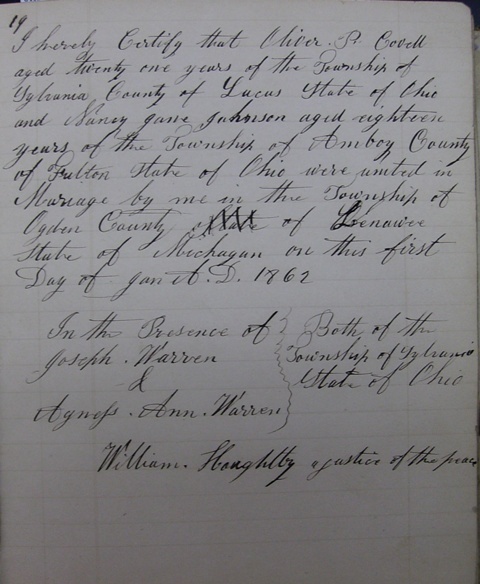 19
I hereby Certify that Oliver. P. Covell
aged twenty one years of the Township of
Sylvania County of Lucas State of Ohio
and Nancy jane Johnson aged eighteen
years of the Township of Amboy County
of Fulton State of Ohio were united in
Mariage by me in the Township of
Ogden County of Lenawee
State of Mechagan on this first
Day of jan A. D. 1862
In the Presence of
Joseph. Warren
&
Agness. Ann. Warren
Both of the
Township of Sylvania
State of Ohio
William. Houghtby a justice of the peace